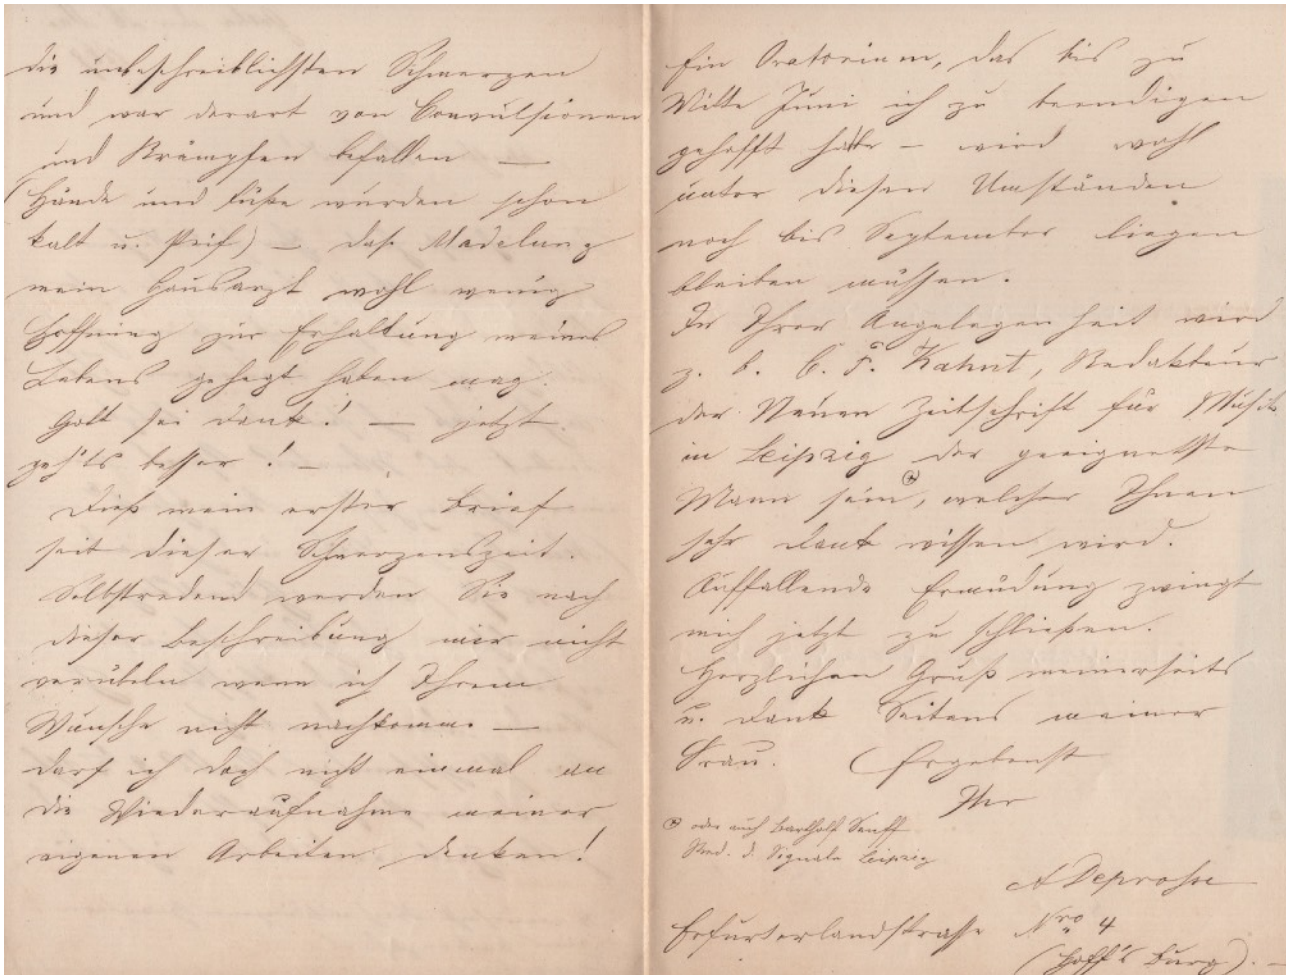 die unbeschreiblichsten Schmerzen
und war derart von Convulsionen
und Krämpfen befallen —
(Hände und Füße wurden schon
kalt u. steif) — daß Madelung
mein Hausarzt wohl wenig
Hoffnung zur Erhaltung meines
Lebens gehegt haben mag.
Gott sei Dank! — jetzt
geht's besser! —
Dieß mein erster Brief
seit dieser Schmerzenszeit.
Selbstredend werden Sie nach
dieser Beschreibung mir nicht
verübeln wenn ich Ihrem
Wunsche nicht nachkomme —
darf ich doch nicht einmal an
die Wiederaufnahme meiner
eigenen Arbeiten denken!
Ein Oratorium, das bis zu
Mitte Juni ich zu beendigen
gehofft habe — wird wohl
unter diesen Umständen
noch bis September liegen
bleiben müssen.
In Ihrer Angelegenheit wird
z. B. C. F. Kahnt, Redakteur
der Neuen Zeitschrift für Musik
in Leipzig der geeignetste
Mann sein, welcher Ihnen
sehr Dank wissen wird.
Auffallende Ermüdung zwingt
mich jetzt zu schließen.
Herzlichen Gruß meinerseits
u. Dank Seitens meiner
Frau. Ergebenst
Ihr
oder auch Bartholf Senff
Red. d. Signale Leipzig
A Deprosse
Erfurterlandstrasse Nro 4
(Hoff's Burg). —